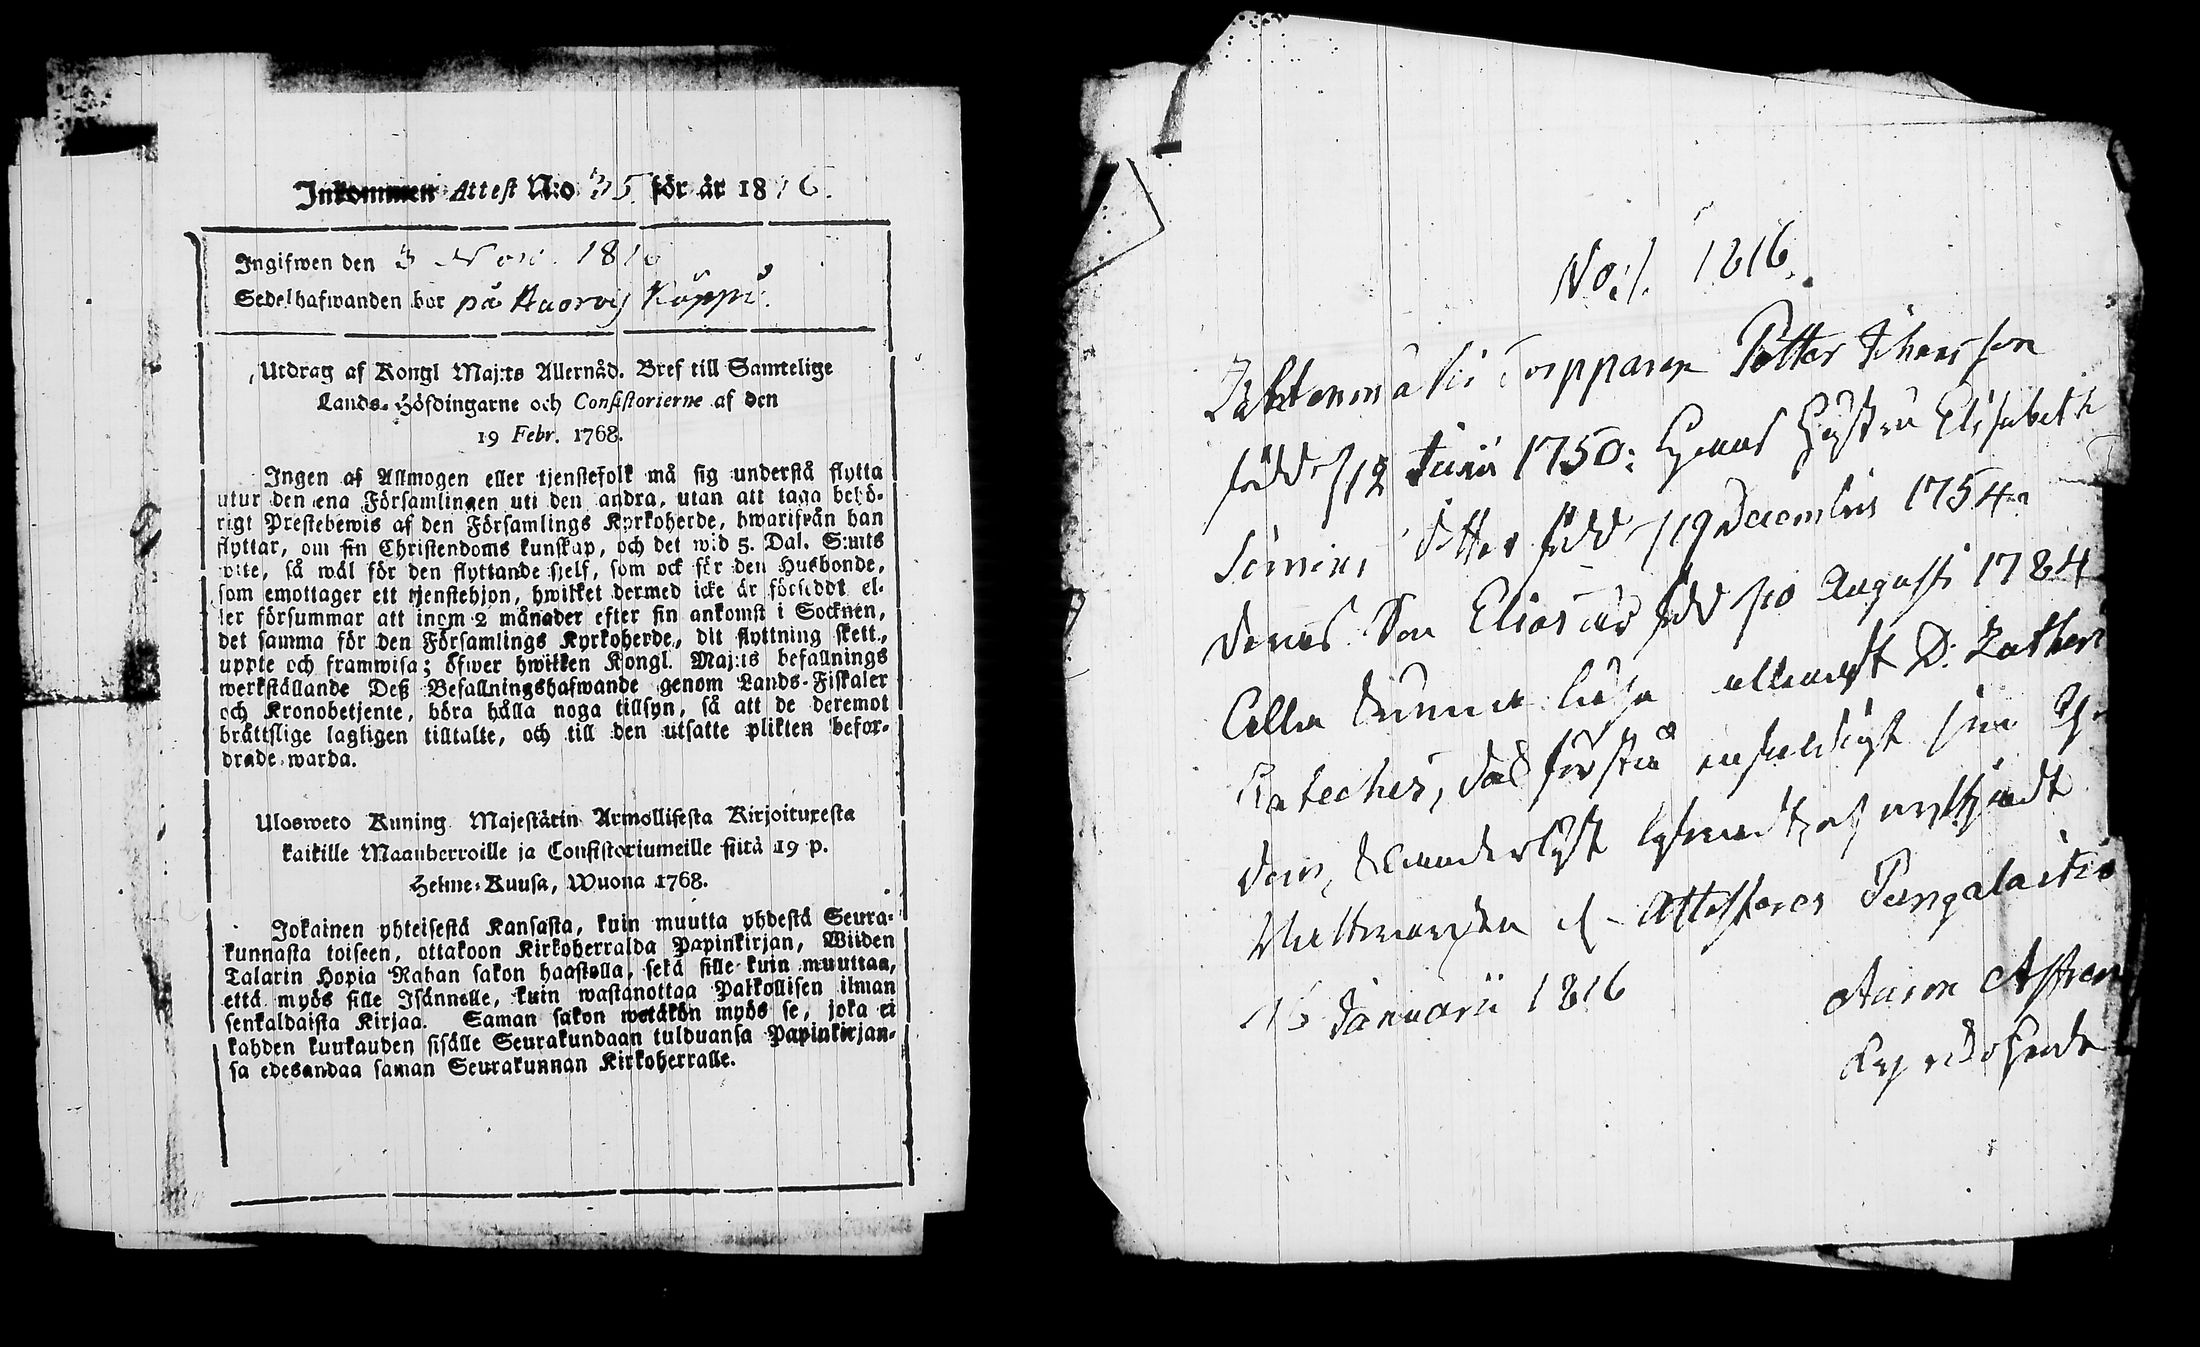 Inkommen Attest N:o 35. för år 1816.
Ingifwen den 3 Nov. 1816
Sedelhafwanden bor på Kaorvis Käppi.
Utdrag af Kongl Maj:ts Allernåd. Bref till Samtelige
Lands-Höfdingarne och Consistorierne af den
19 Febr. 1768.
Ingen af Allmogen eller tjenstefolk må sig understå flytta
utur den ena Församlingen uti den andra, utan att taga behö-
rigt Prestebewis af den Församlings Kyrkoherde, hwarifrån han
flyttar, om sin Christendoms kunskap, och det wid 5. Dal. S:mts
wite, så wäl för den flyttande sjelf, som ock för den Husbonde,
som emottager ett tjenstehjon, hwilket dermed icke är försedt el-
ler försummar att inom 2 månader efter sin ankomst i Socknen,
det samma för den Församlings Kyrkoherde, dit flyttning skett,
uppte och framwisa; öfwer hwilken Kongl. Maj:ts befallnings
werkställande Deß Befallningshafwande genom Lands-Fiskaler
och Kronobetjente, böra hålla noga tillsyn, så att de deremot
bråttslige lagligen tilltalte, och till den utsatte plikten befor-
drade warda.
Ulosweto Kuning. Majestätin Armollisesta Kirjoituxesta
kaikille Maanherroille ja Consistoriumeille siitä 19 p.
Helme-Kuusa, Wuona 1768.
Jokainen yhteisestä Kansasta, kuin muutta yhdestä Seura-
kunnasta toiseen, ottakoon Kirkoherralda Papinkirjan, Wiiden
Talarin Hopia Rahan sakon haastolla, sekä sille kuin muuttaa,
että myös sille Isännelle, kuin wastanottaa Palkollisen ilman
senkaldaista Kirjaa. Saman sakon wetäkön myös se, joka ei
kahden kuukauden sisälle Seurakundaan tulduansa Papinkirjan-
sa edesandaa saman Seurakunnan Kirkoherralle.
No: 1. 1816.
Torpparen Petter Johansson
född 12 Junii 1750: Hustru Elisabeth
Simons dotter född 19 Decembris 1754.
deras Son Elias är född 10 Augusti 1784
Alla kunna läsa D: Lutheri
Kateches, förstå enfaldigt sin
Nattvarden Attesteras Pungalaitio
15 Januarii 1816 Aaron